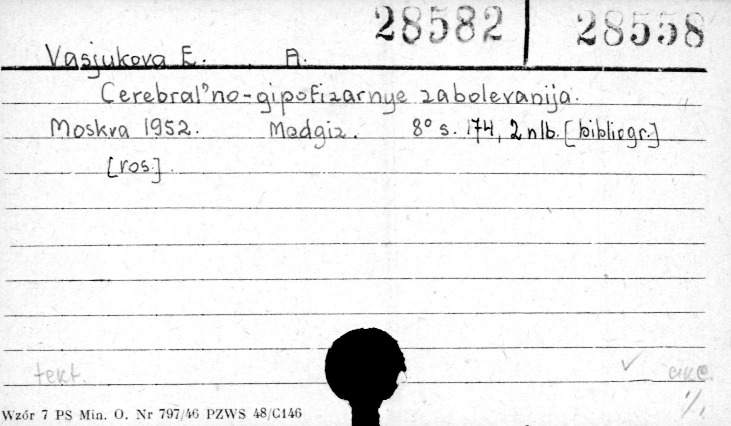 28582 28558
Vasjukova E. A.
Cerebral'no-gipofizarnye zabolevanija.
Moskva 1952. Medgiz. 8° s. 174, 2 nlb. [bibliogr.]
[ros.]
tekt. akc.
Wzór 7 PS Min. O. Nr 797/46 PZWS 48/C146